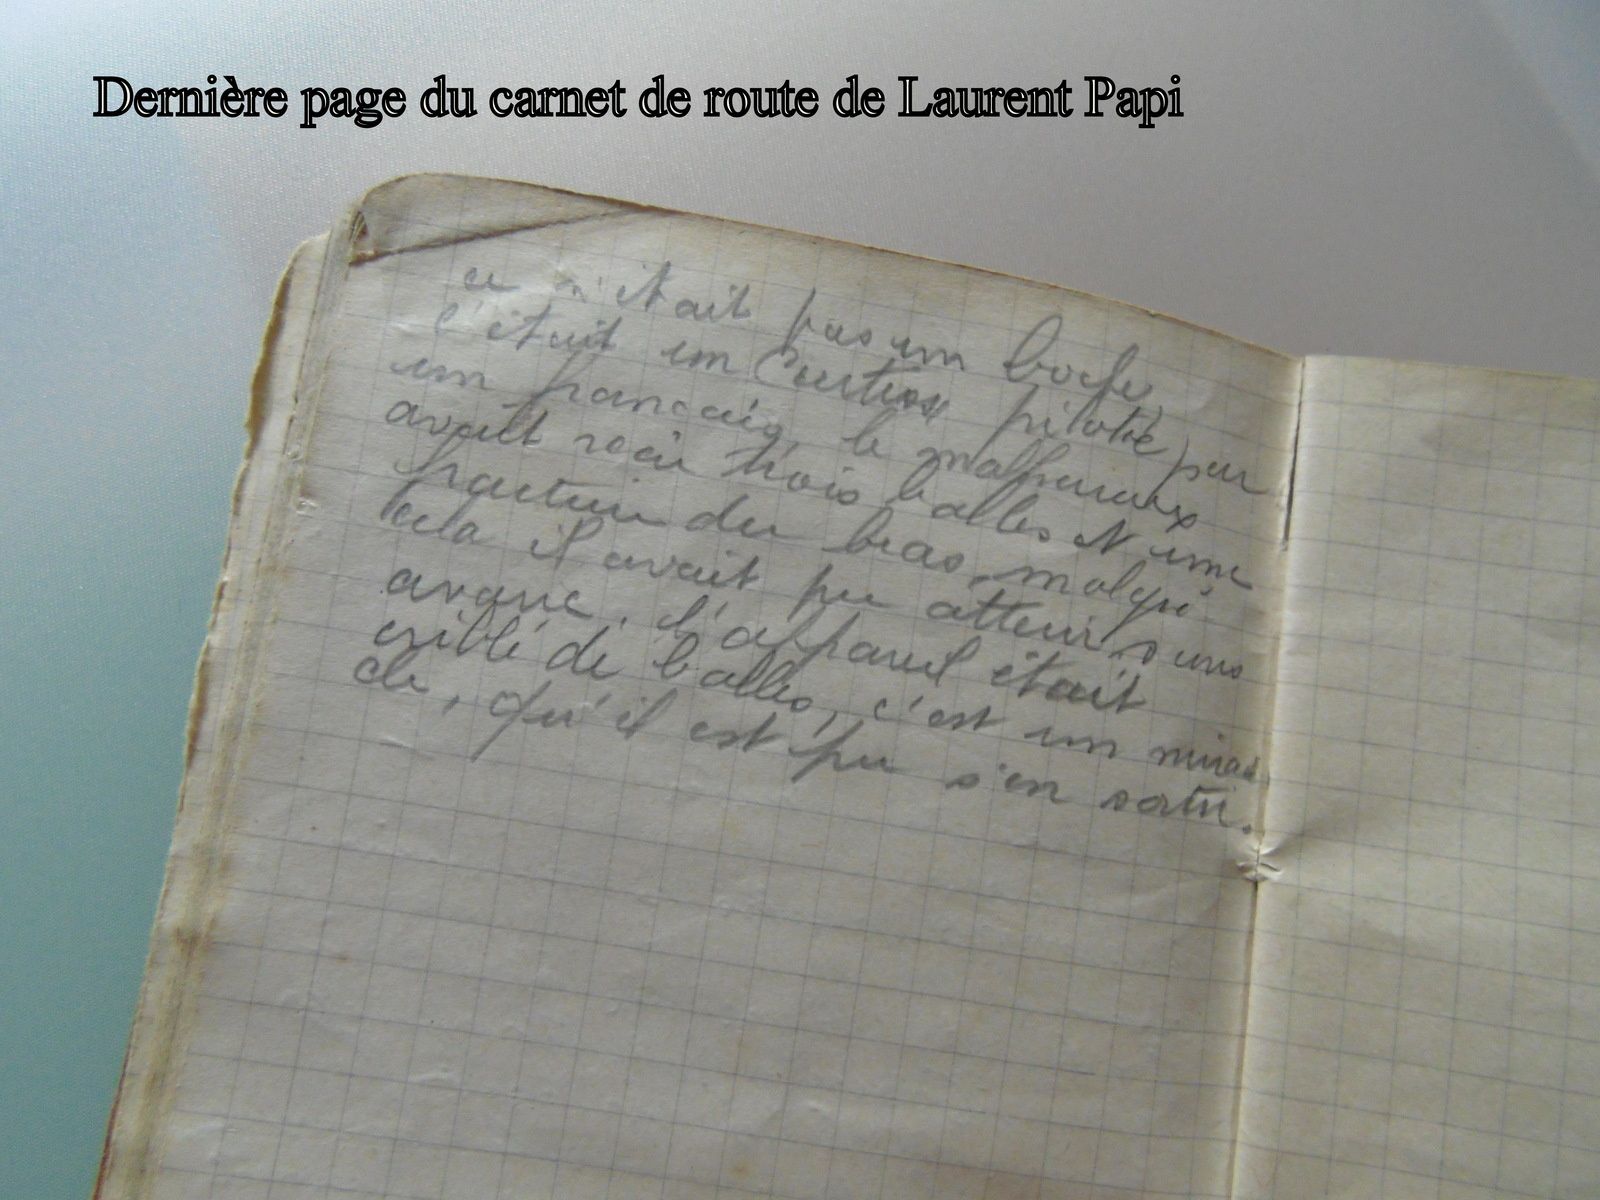 Dernière page du carnet de route de Laurent Papi
ce n'était pas un boche,
c'était un Curtiss piloté par
un français, le malheureux
avait reçu trois balles et une
fracture du bras, malgré
cela il avait pu atterir sans
avarie, l'appareil était
criblé de balles, c'est un mira
cle, qu'il est pu s'en sortir.